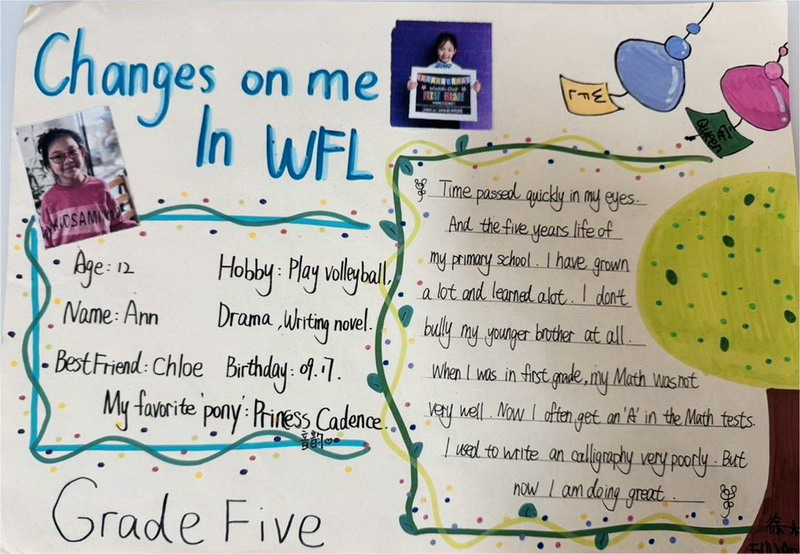 Changes on me
In WFL
FIRST GRADE
Queen
Age: 12
Hobby: Play volleyball,
Name: Ann
Drama, Writing novel.
Best Friend: Chloe
Birthday: 09.17.
My favorite 'pony': Priness Cadence.
Grade Five
Time passed quickly in my eyes.
And the five years life of
my primary school. I have grown
a lot and learned alot. I don't
bully my younger brother at all.
When I was in first grade, my Math was not
very well. Now I often get an 'A' in the Math tests.
I used to write an calligraphy very poorly. But
now I am doing great.